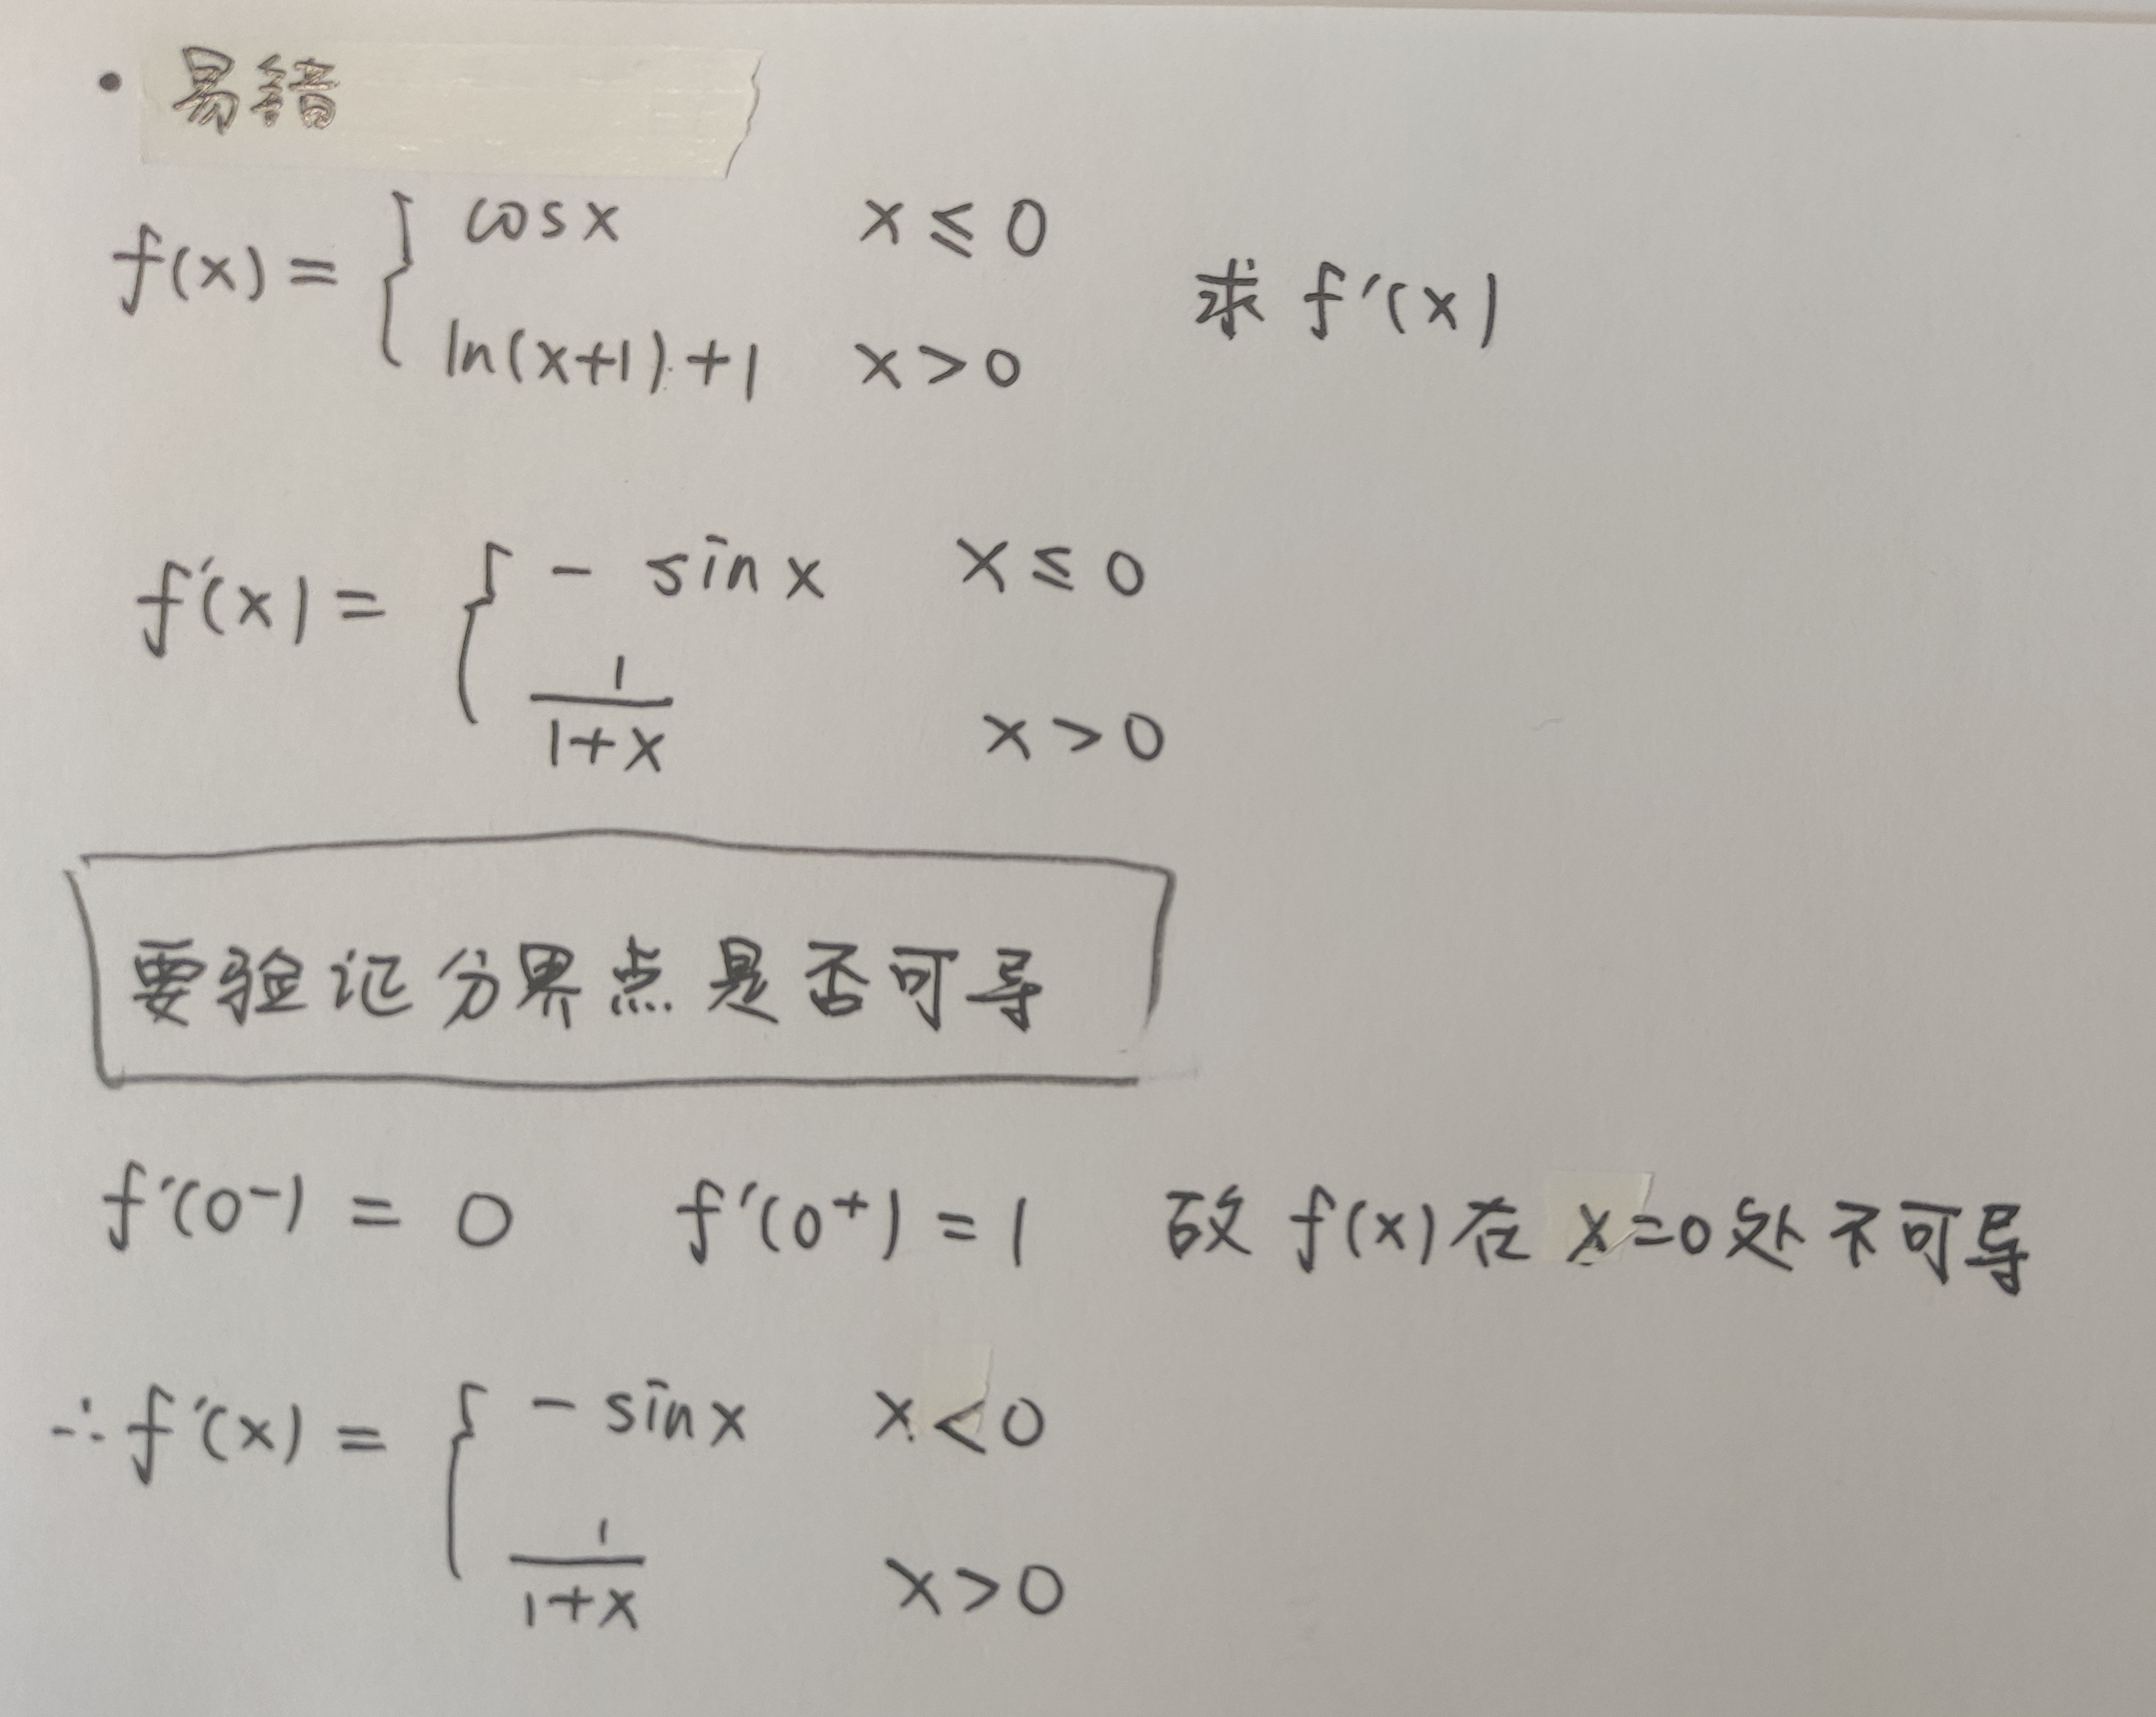 • 易錯
f(x) = { cosx x ≤ 0
ln(x+1)+1 x > 0
求 f'(x)
f'(x) = { - sinx x ≤ 0
1/(1+x) x > 0
要验证分界点是否可导
f'(0-) = 0 f'(0+) = 1 故 f(x) 在 x=0 处不可导
∴ f'(x) = { - sinx x < 0
1/(1+x) x > 0